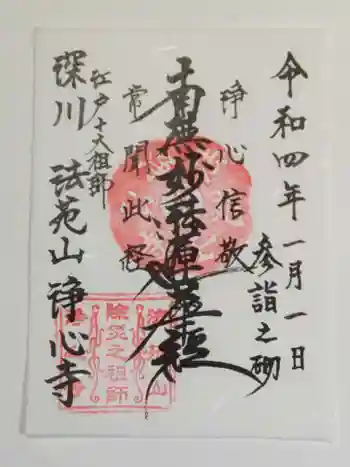 令和四年一月一日
参詣之砌
浄心信敬
南無妙法蓮華経
常聞此経
江戸十大祖師
深川 法苑山 浄心寺
除災之祖師